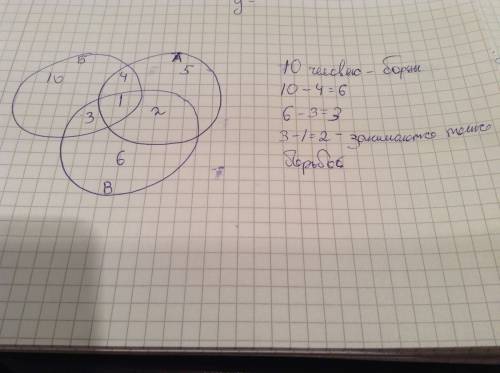 Б
А
10
4
5
1
3
2
6
В
10 человек - борцы
10 - 4 = 6
6 - 3 = 3
3 - 1 = 2 - занимаются только
борьбой